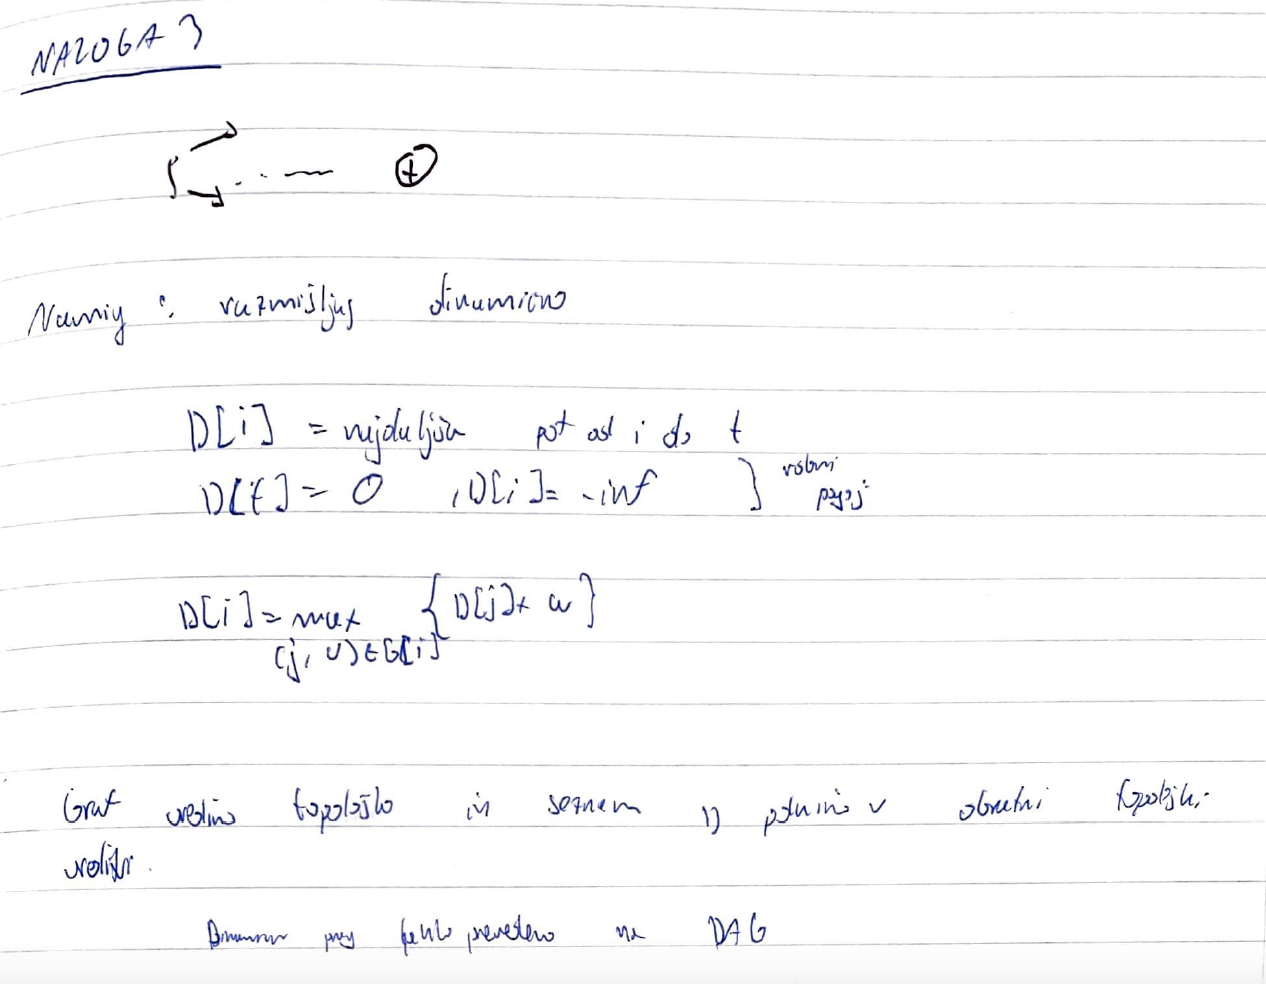 NALOGA 3
t
Namig : razmišljaj dinamično
D[i] = najdaljša pot od i do t
D[t] = 0 , D[i] = -inf } robni pogoji
D[i] = max { D[j] + w }
(j, v) ∈ G[i]
Graf uredimo topološko in seznam D polnimo v obratni topološki
ureditvi.
lahko prevedemo na DAG